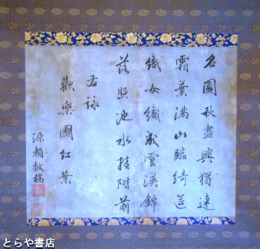 名園秋盡興猶連
霜葉滿山臨綺筵
織女織成雲漢錦
落照池水挂階前
右詠
歡樂園紅葉
源賴
とらや書店